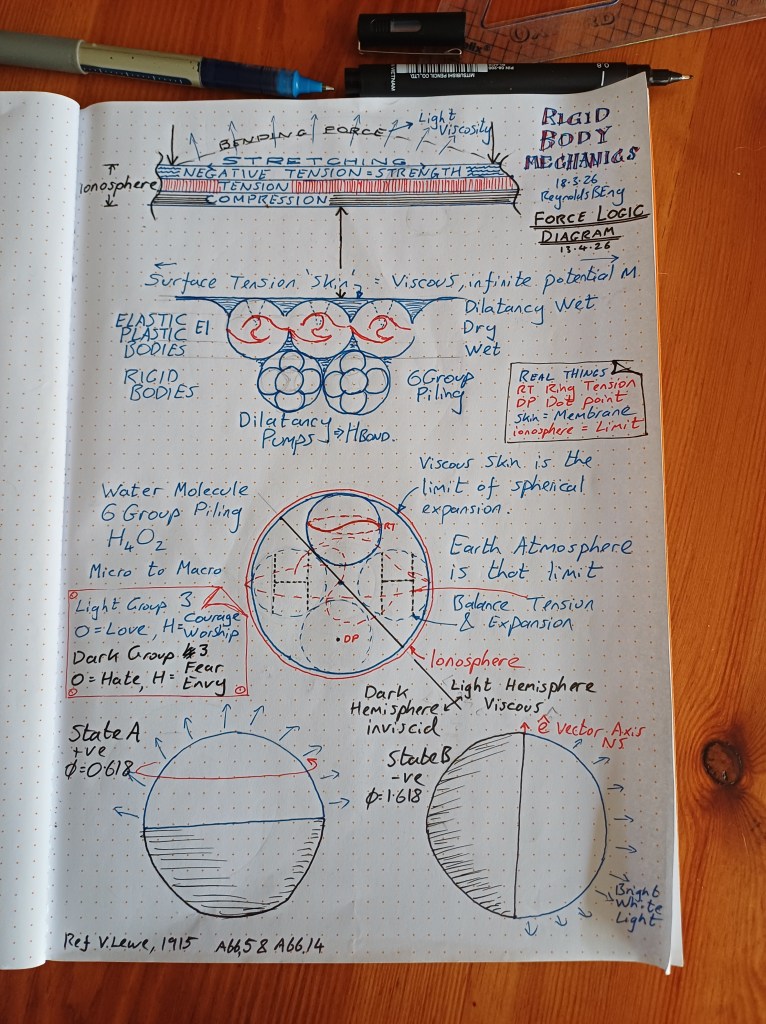 MITSUBISHI PENCIL CO.
VIETNAM
0.8
RIGID
BODY
MECHANICS
18.3.26
Reynolds BEng
FORCE LOGIC
DIAGRAM
13.4.26
BENDING FORCE
Light
Viscosity
STRETCHING
NEGATIVE TENSION = STRENGTH
TENSION
COMPRESSION
Ionosphere
Surface Tension 'Skin' = Viscous, infinite potential M.
ELASTIC
PLASTIC EI
BODIES
Dilatancy Wet
Dry
Wet
RIGID
BODIES
6 Group
Piling
Dilatancy
Pumps ⇒ H BOND.
REAL THINGS
RT Ring Tension
DP Dot point
Skin = Membrane
ionosphere = Limit
Viscous Skin is the
limit of spherical
expansion.
Water Molecule
6 Group Piling
H4O2
Micro to Macro
RT
H
H
DP
Earth Atmosphere
is that limit
Balance Tension
& Expansion
Light Group 3
O = Love, H = Courage
Worship
Dark Group 3
O = Hate, H = Fear
Envy
Ionosphere
Dark
Hemisphere
inviscid
Light Hemisphere
Viscous
State A
+ve
Φ=0.618
State B
-ve
Φ=1.618
ê Vector Axis
NS
Bright
White
Light
Ref V. Lewe, 1915 Abb,5 & Abb,14